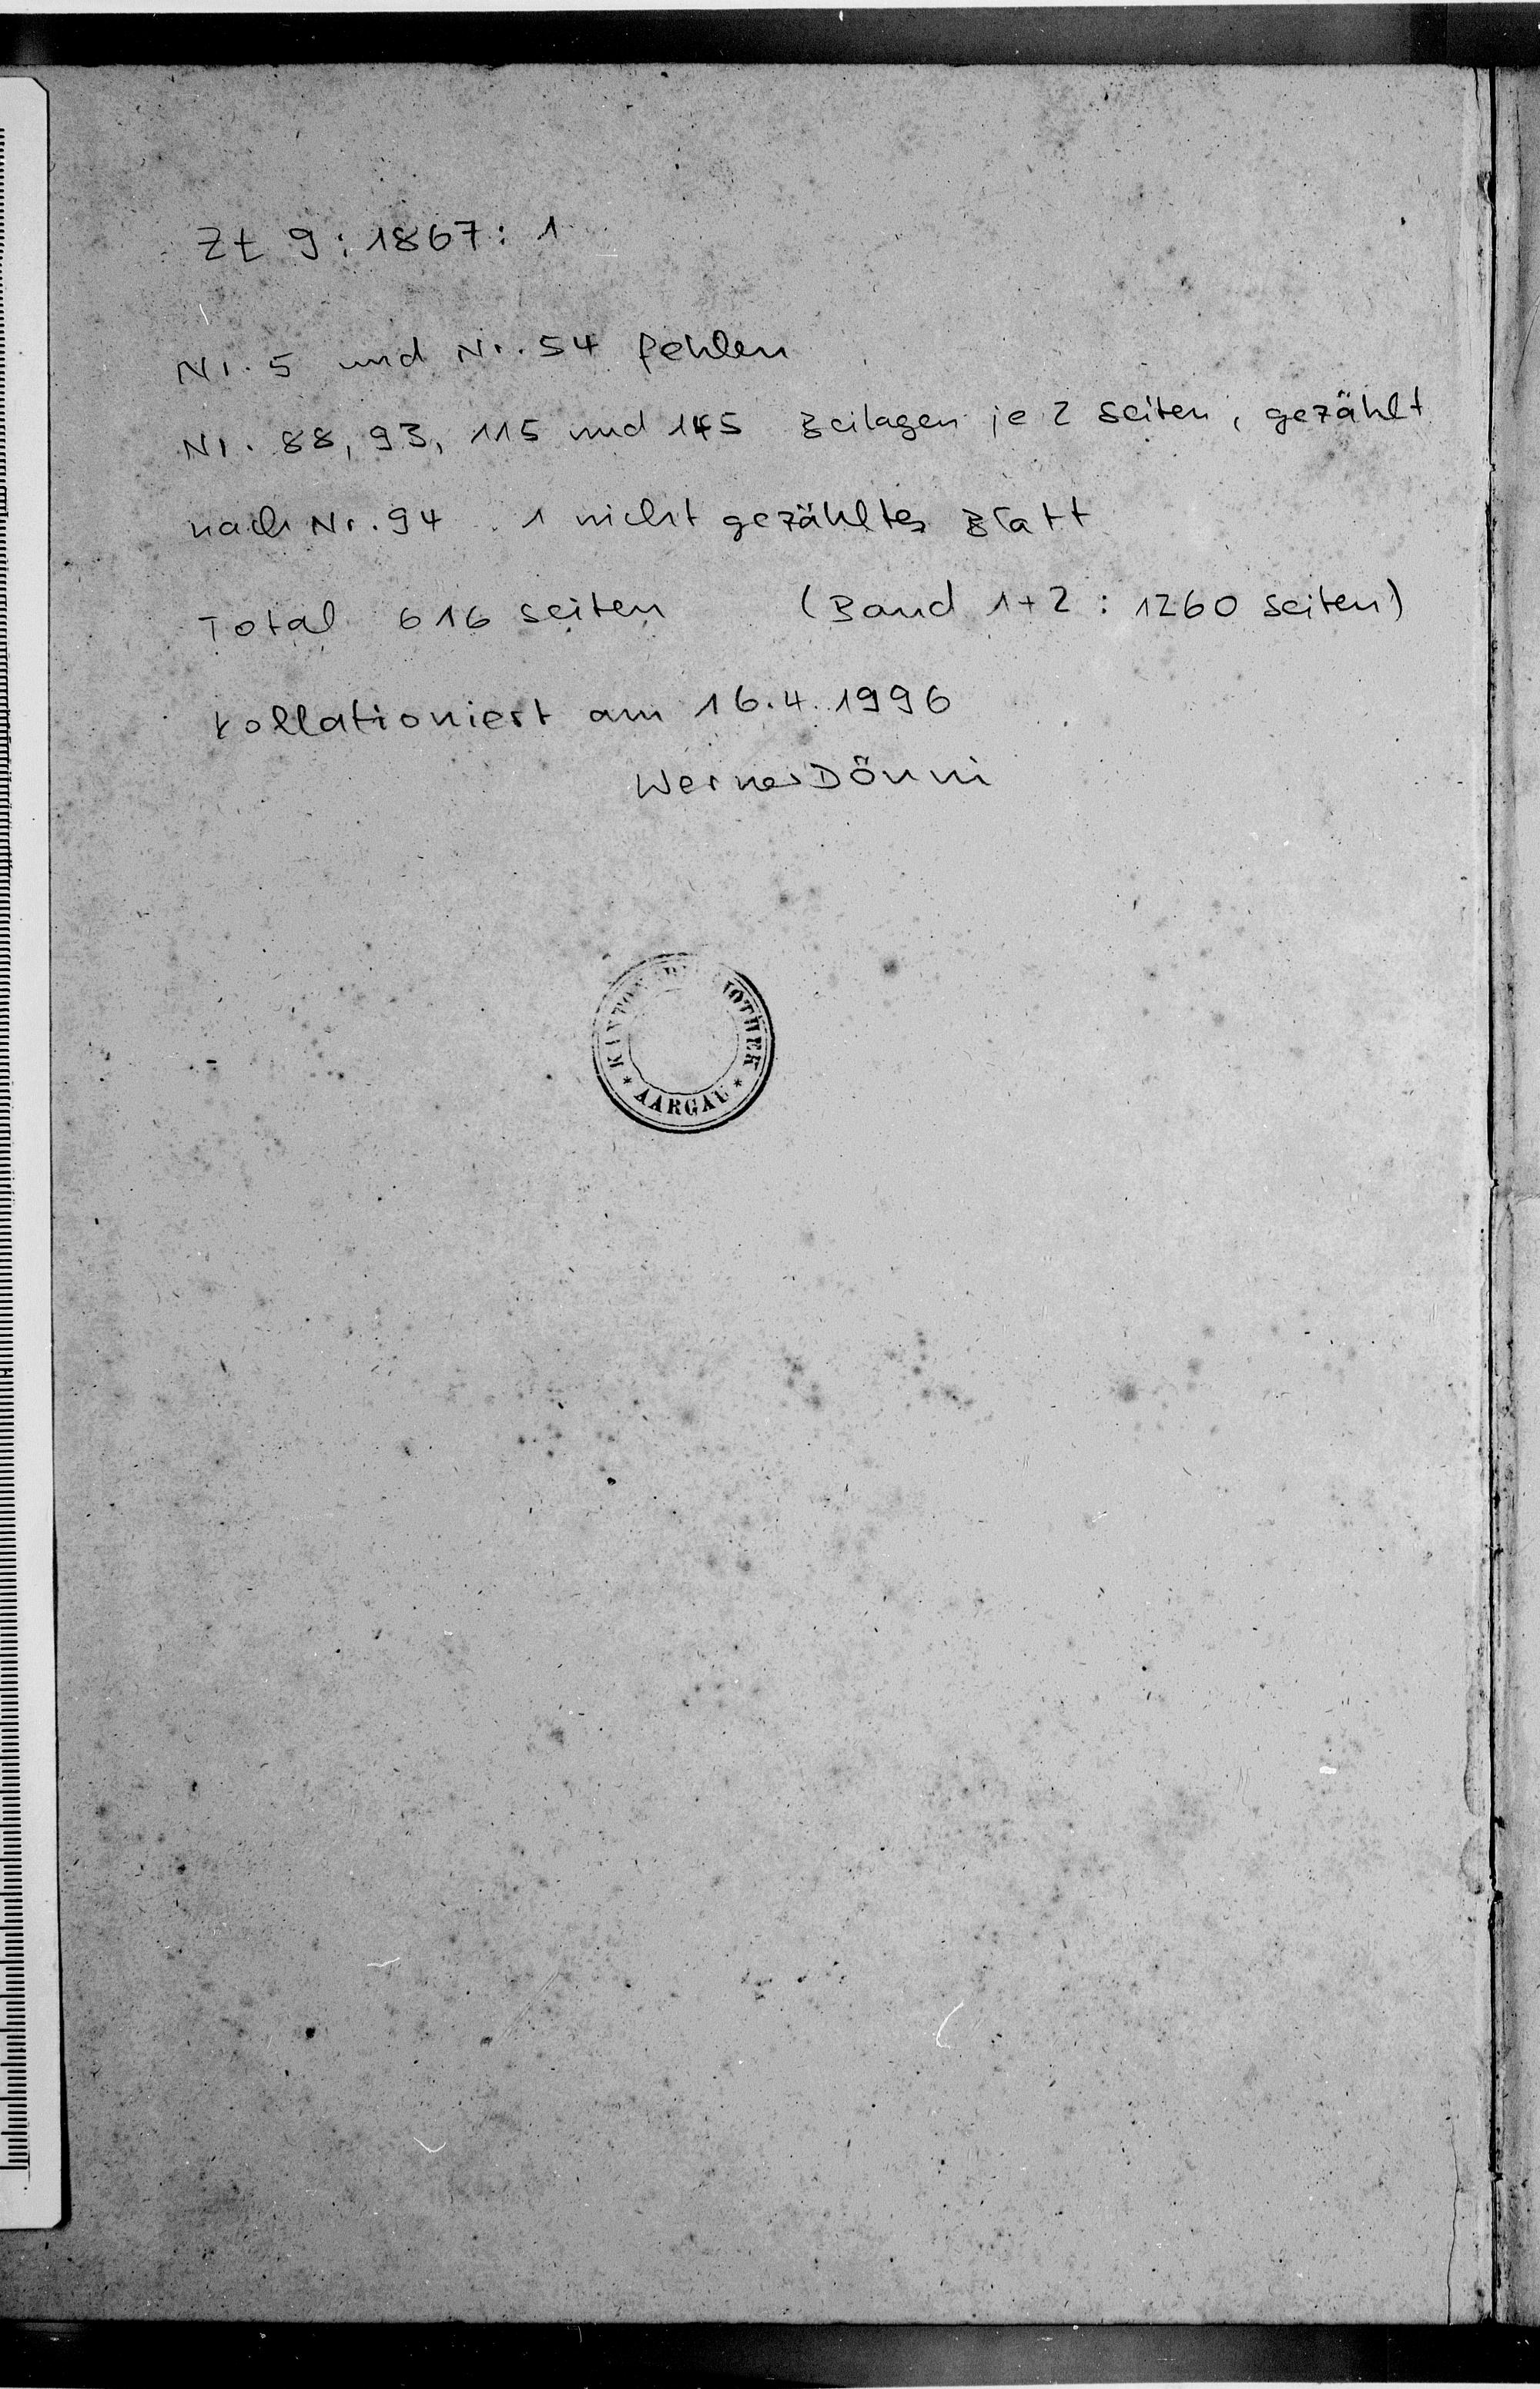 Zt 9: 1867: 1
Nr. 5 und Nr. 54 fehlen
Nr. 88, 93, 115 und 145 Beilagen je 2 Seiten, gezählt
nach Nr. 94 1 nicht gezähltes Blatt
Total 616 Seiten (Band 1+2: 1260 Seiten)
kollationiert am 16.4.1996
Werner Dönni
KANTONSBIBLIOTHEK
* AARGAU *